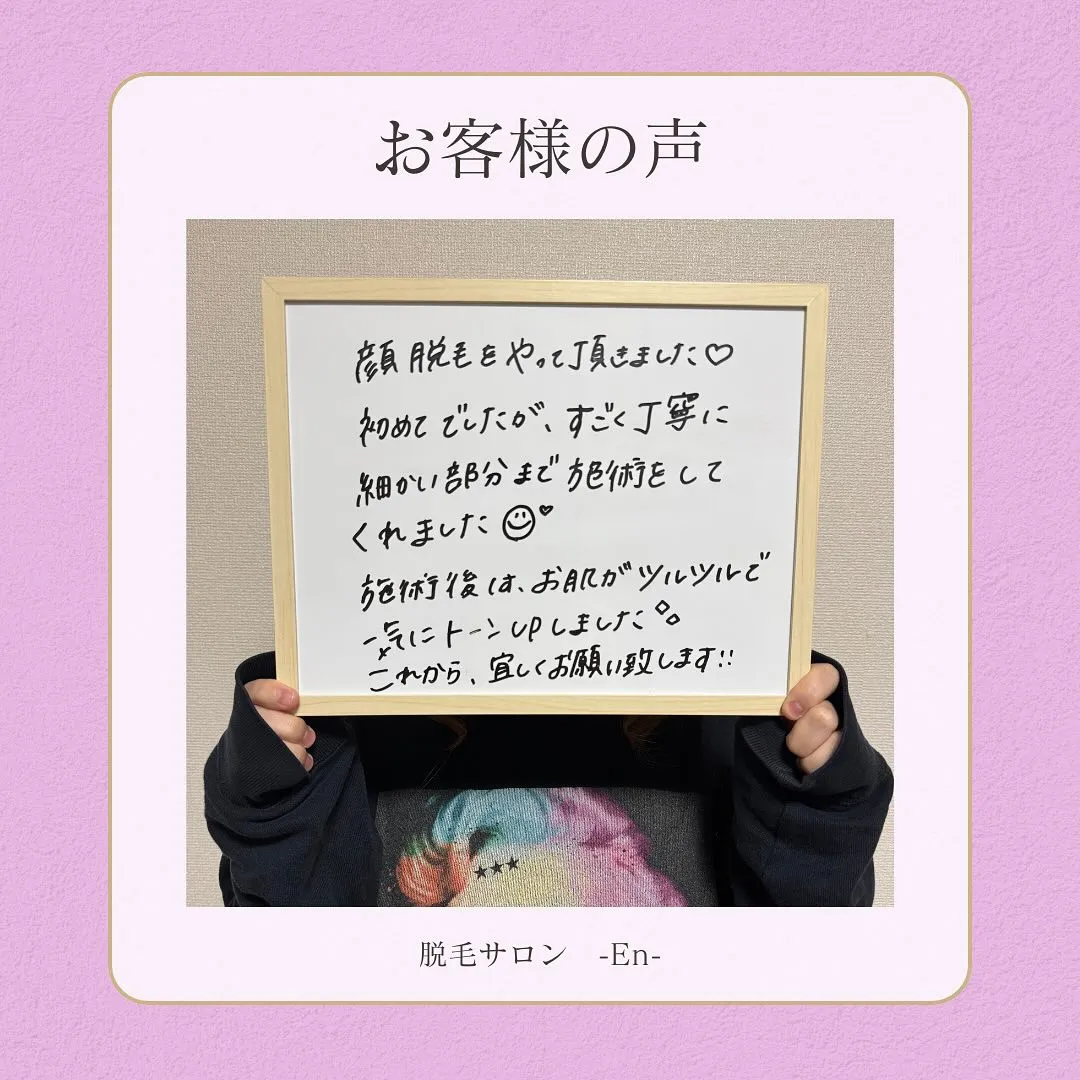 お客様の声
顔脱毛をやって頂きました♡
初めてでしたが、すごく丁寧に
細かい部分まで施術をして
くれました☺♡
施術後は、お肌がツルツルで
一気にトーンUPしました
これから、宜しくお願い致します!!
★★★
脱毛サロン -En-